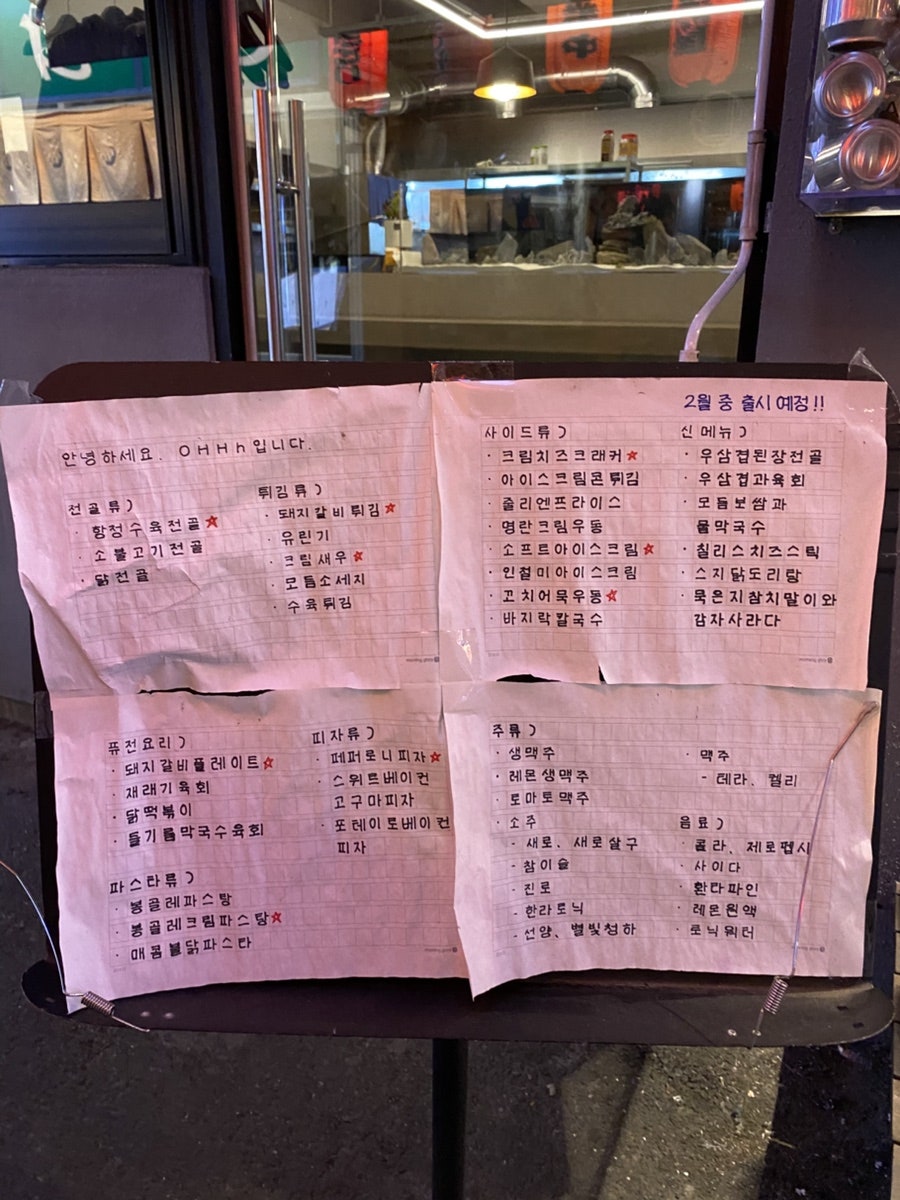 안녕하세요. OHHh입니다.
전골류)
· 항정수육전골☆
· 소불고기전골
· 닭전골
튀김류)
· 돼지갈비튀김☆
· 유린기
· 크림새우☆
· 모듬소세지
· 수육튀김
2월 중 출시 예정!!
사이드류)
· 크림치즈크래커☆
· 아이스크림콘튀김
· 줄리엔프라이스
· 명란크림우동
· 소프트아이스크림☆
· 인절미아이스크림
· 꼬치어묵우동☆
· 바지락칼국수
신메뉴)
· 우삼겹된장전골
· 우삼겹과육회
· 모듬보쌈과
물막국수
· 칠리스치즈스틱
· 스지닭도리탕
· 묵은지참치말이와
감자사라다
퓨전요리)
· 돼지갈비플레이트☆
· 재래기육회
· 닭떡볶이
· 들기름막국수육회
파스타류)
· 봉골레파스탕
· 봉골레크림파스탕☆
· 매콤불닭파스타
피자류)
· 페퍼로니피자☆
· 스위트베이컨
고구마피자
· 포테이토베이컨
피자
주류)
· 생맥주
· 레몬생맥주
· 토마토맥주
· 소주
- 새로、새로살구
- 참이슬
- 진로
- 한라토닉
- 선양、별빛청하
· 맥주
- 테라、켈리
음료)
· 콜라、제로펩시
· 사이다
· 환타파인
· 레몬원액
· 토닉워터